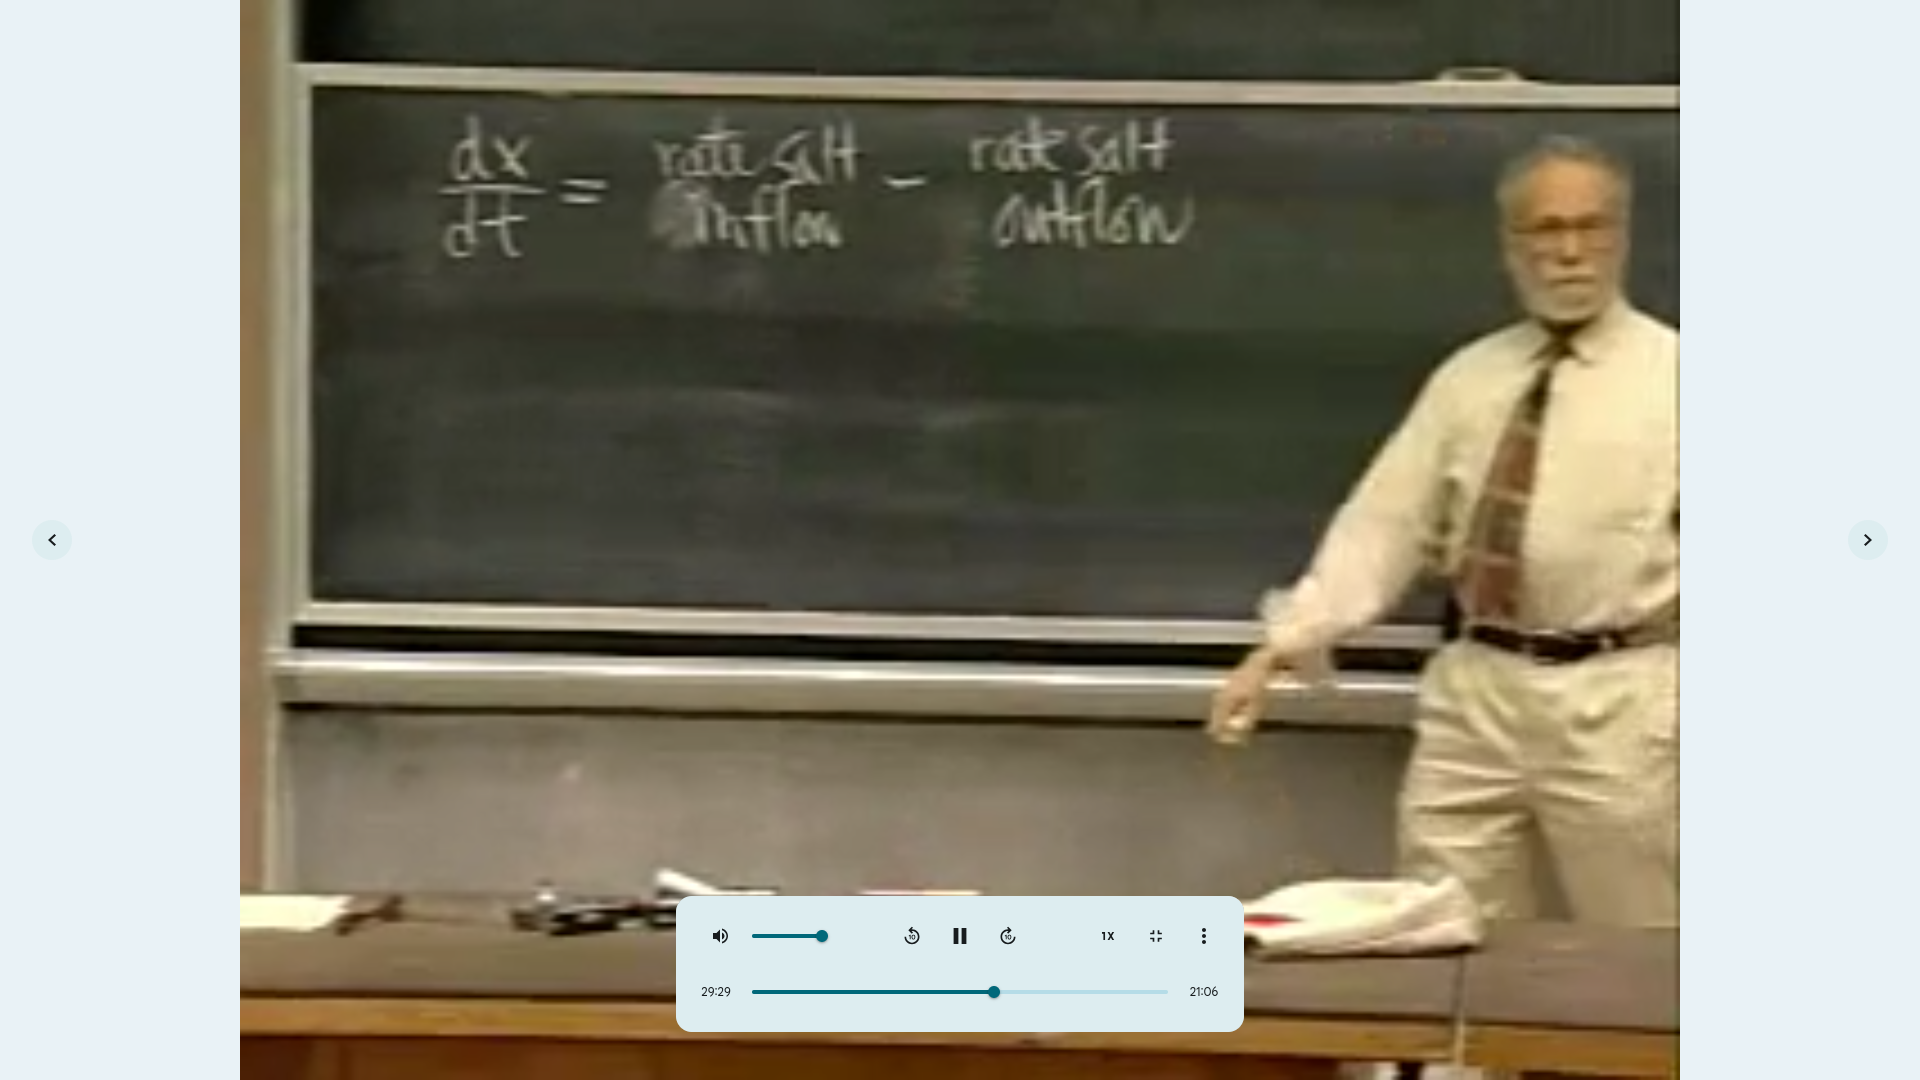 dx/dt = rate salt inflow − rate salt outflow
1X
29:29
21:06